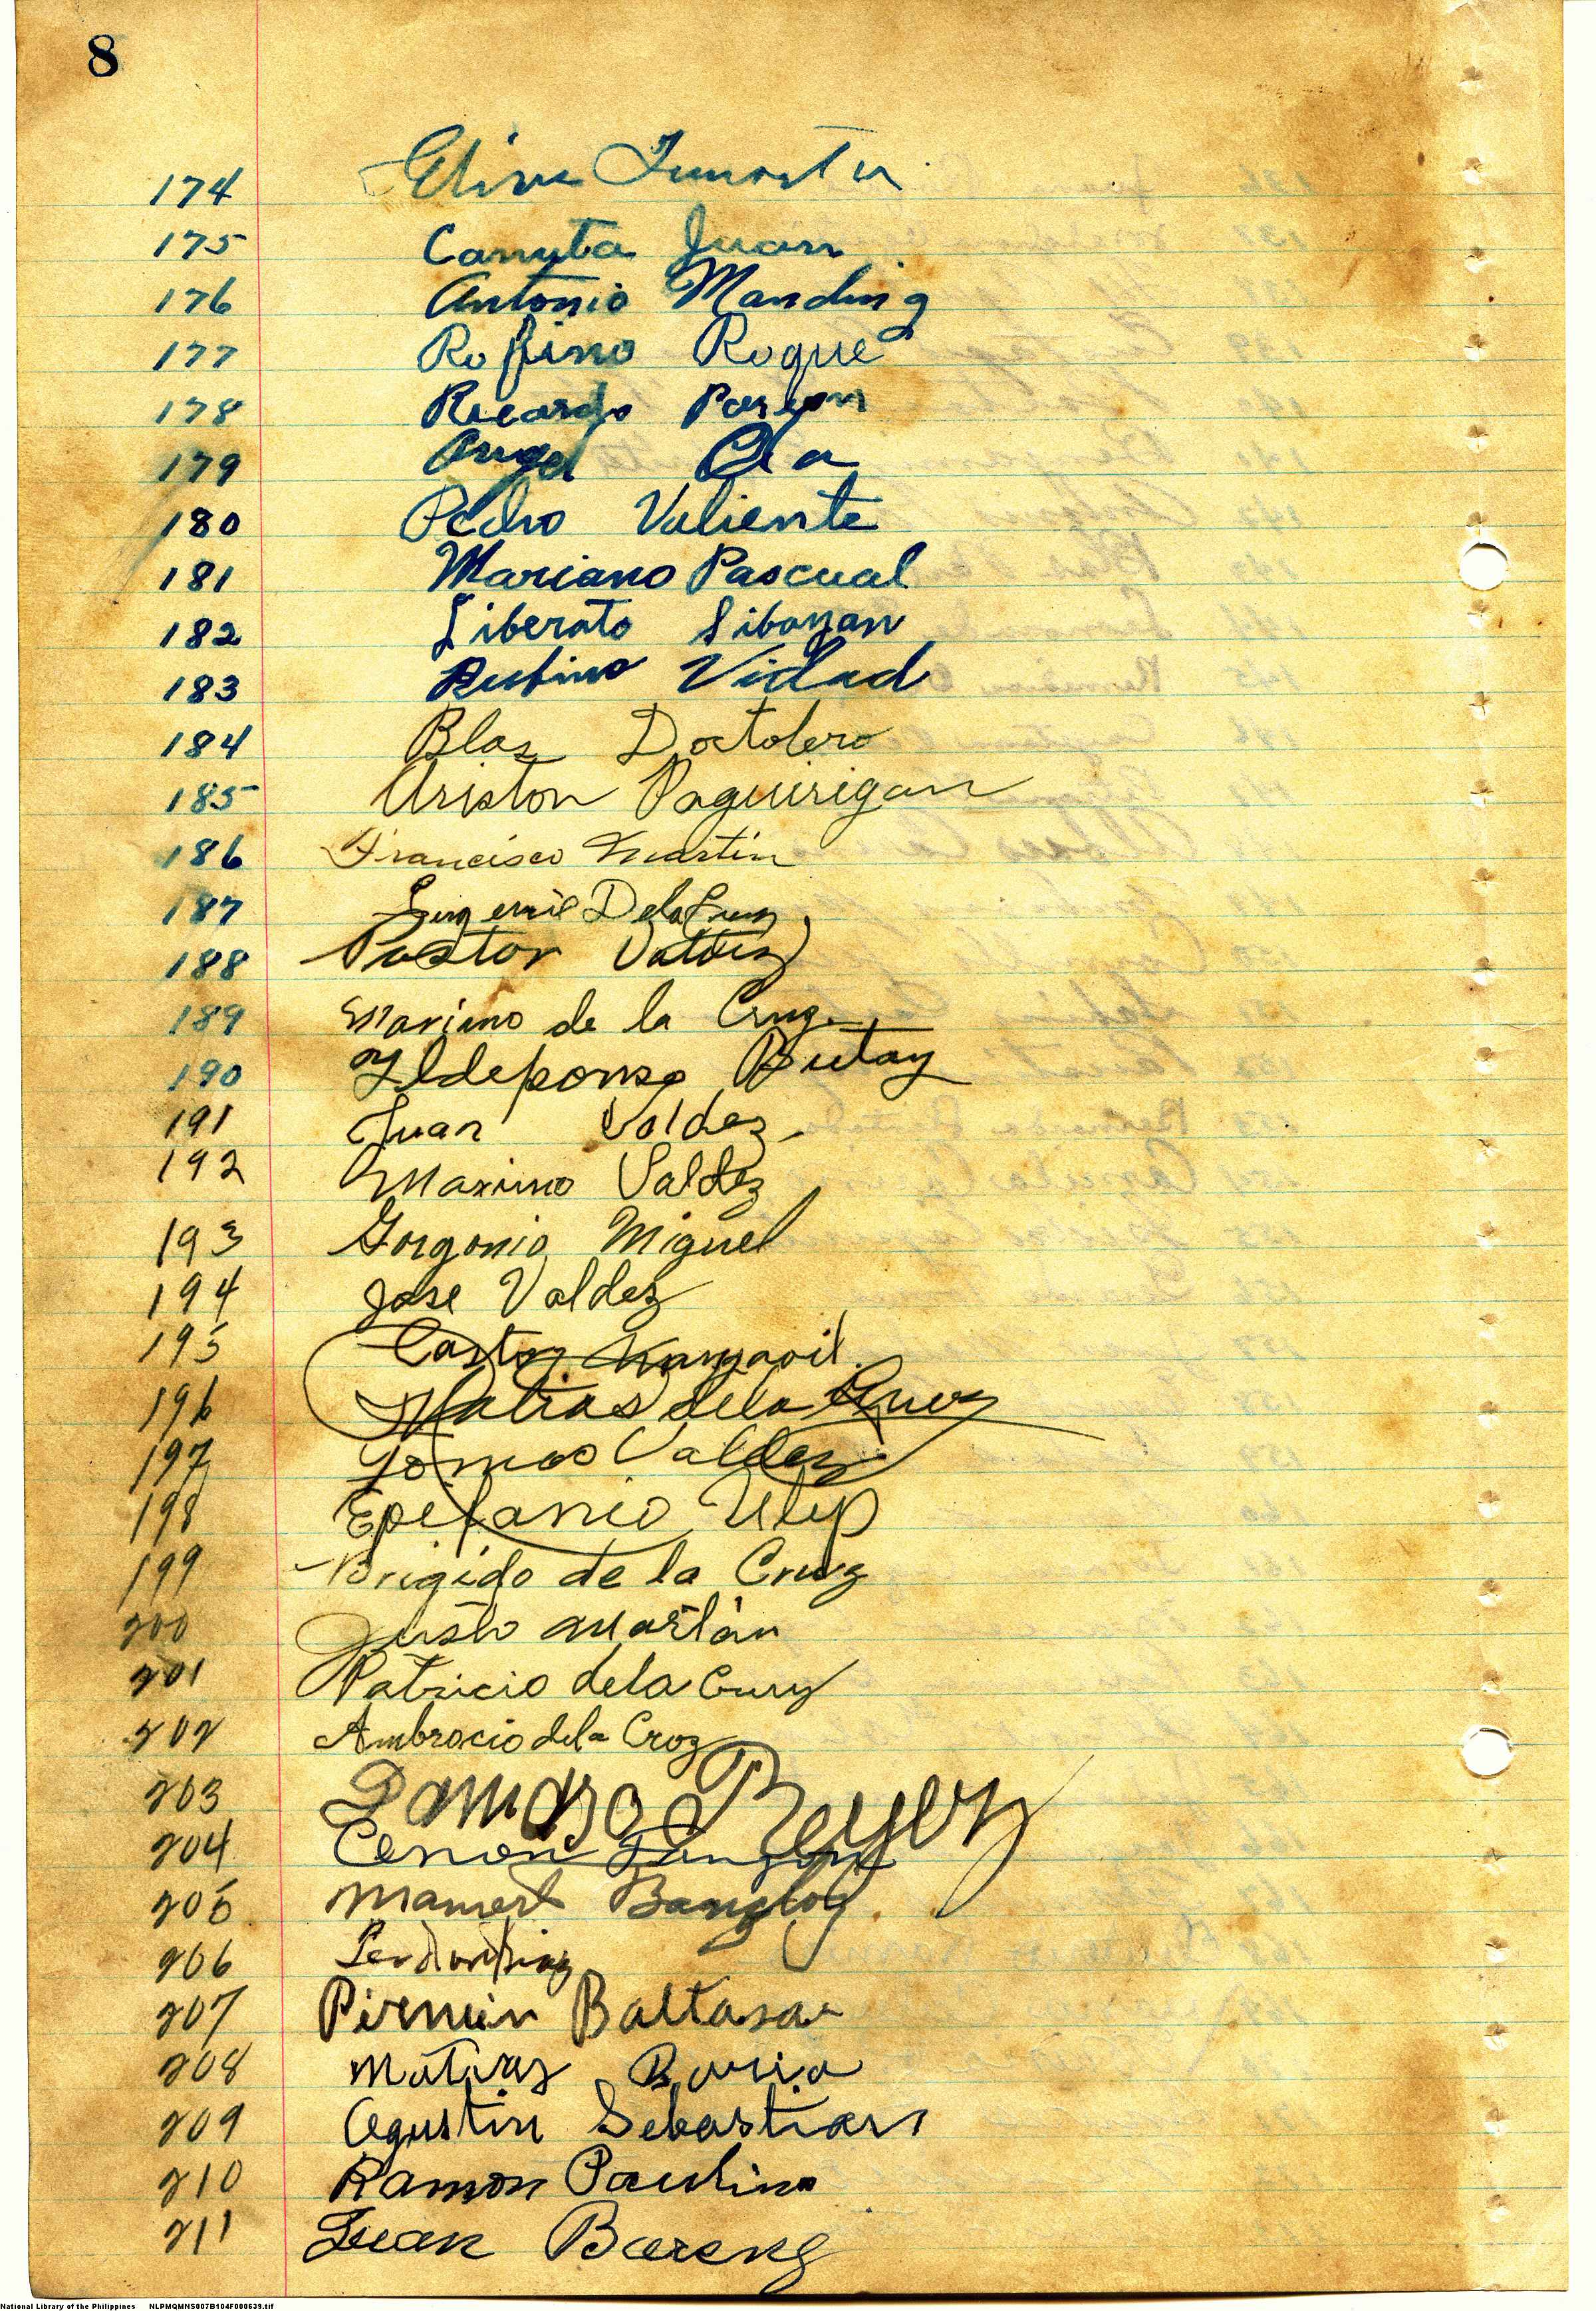 8
174
175 Canuta Juan
176 Antonio Manding
177 Rofino Roque
178 Ricardo
179 Angel
180 Pedro Valiente
181 Mariano Pascual
182 Liberato Sibayan
183 Rufino Vidad
184 Blas Doctolero
185 Ariston Paguirigan
186 Francisco Martin
187 Dela Cruz
188 Pastor Valdez
189 Mariano de la Cruz
190 Yldeponso Butay
191 Juan Valdez
192 Maximo Valdez
193 Gorgonio Miguel
194 Jose Valdez
195 Castor
196 Matias dela Cruz
197 Tomas Valdez
198 Epifanio Ulep
199 Brigido de la Cruz
200 Justo Martin
201 Patricio dela Cruz
202 Ambrocio dela Croz
203 Damaso Reyes
204 Cenon
205 Mamert
206
207 Pirmin Baltasar
208 Matias
209 Agustin Sebastian
210 Ramon Paulino
211 Juan Bareng
National Library of the Philippines NLPMQMNS007B104F000639.tif